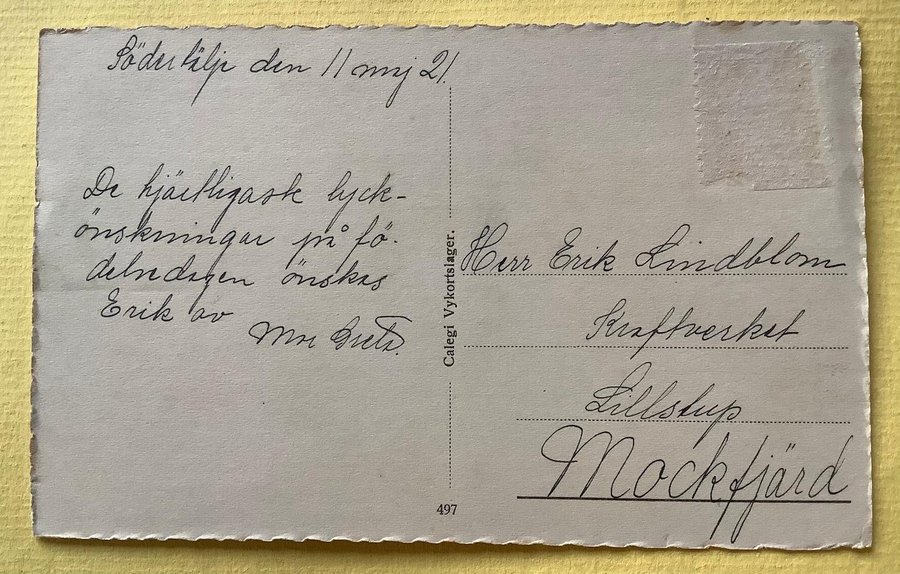 Södertälje den 11 maj 21.
De hjärtligaste lyck-
önskningar på fö-
delsedagen önskas
Erik av
Mor Greta.
Calegi Vykortslager.
497
Herr Erik Lindblom
Kraftverket
Lillstup
Mockfjärd